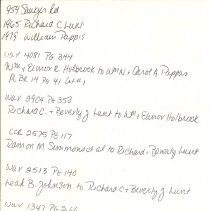 959 Sawyer Rd
1965 Richard C Lunt
1979 William Pappis
4081 Pg 344
Wm + Elinor R Holbrook to Wm N + Carol A Pappas
Pl. Bk 14 Pg 41 Lot 1
2904 Pg 358
Richard C. + Beverly J Lunt to Wm, Elinor Holbrook
2575 Pg 117
Ramon M. Simmons et al to Richard, Beverly Lunt
2513 Pg 140
B. Johnson to Richard C + Beverly J Lunt
1347 Pg